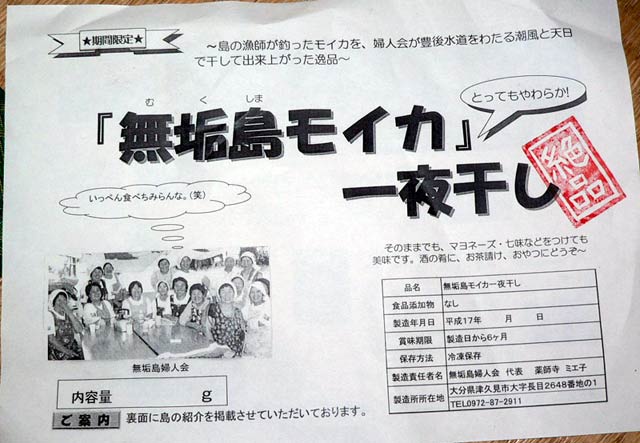 ★期間限定★
～島の漁師が釣ったモイカを、婦人会が豊後水道をわたる潮風と天日
で干して出来上がった逸品～
とってもやわらか!
むくしま
『無垢島モイカ』
一夜干し
絶品
いっぺん食べちみらんな。(笑)
そのままでも、マヨネーズ・七味などをつけても
美味です。酒の肴に、お茶請け、おやつにどうぞ～
品名 無垢島モイカ一夜干し
食品添加物 なし
製造年月日 平成17年 月 日
賞味期限 製造日から6ヶ月
保存方法 冷凍保存
製造責任者名 無垢島婦人会 代表 薬師寺 ミエ子
製造所所在地 大分県津久見市大字長目2648番地の1
TEL0972-87-2911
無垢島婦人会
内容量 g
ご案内 裏面に島の紹介を掲載させていただいております。